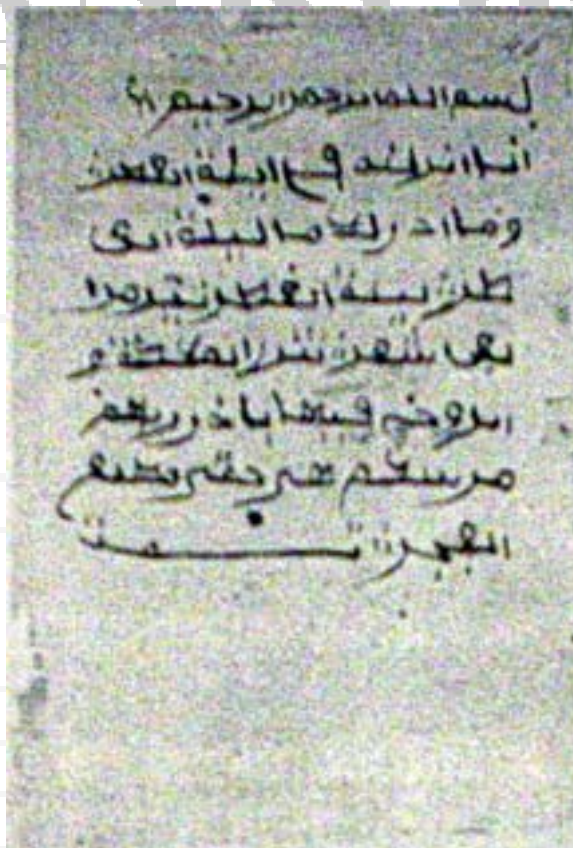 بسم الله الرحمن الرحيم
انا انزلنه في اليلة القدر
وما ادرلك ما ليلة
ليلة القدر
شهر تنزل الملئكة و
الروح فيها باذن ربهم
من سلم هي حتى مطلع
الفجر تمت